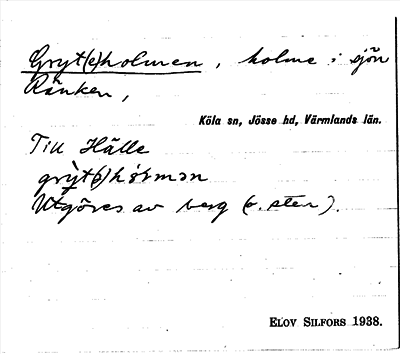 Gryt(e)holmen, holme i sjön
Ränken,
Köla sn, Jösse hd, Värmlands län.
Till Hälle
Utgöres av berg (o. sten).
ELOV SILFORS 1938.